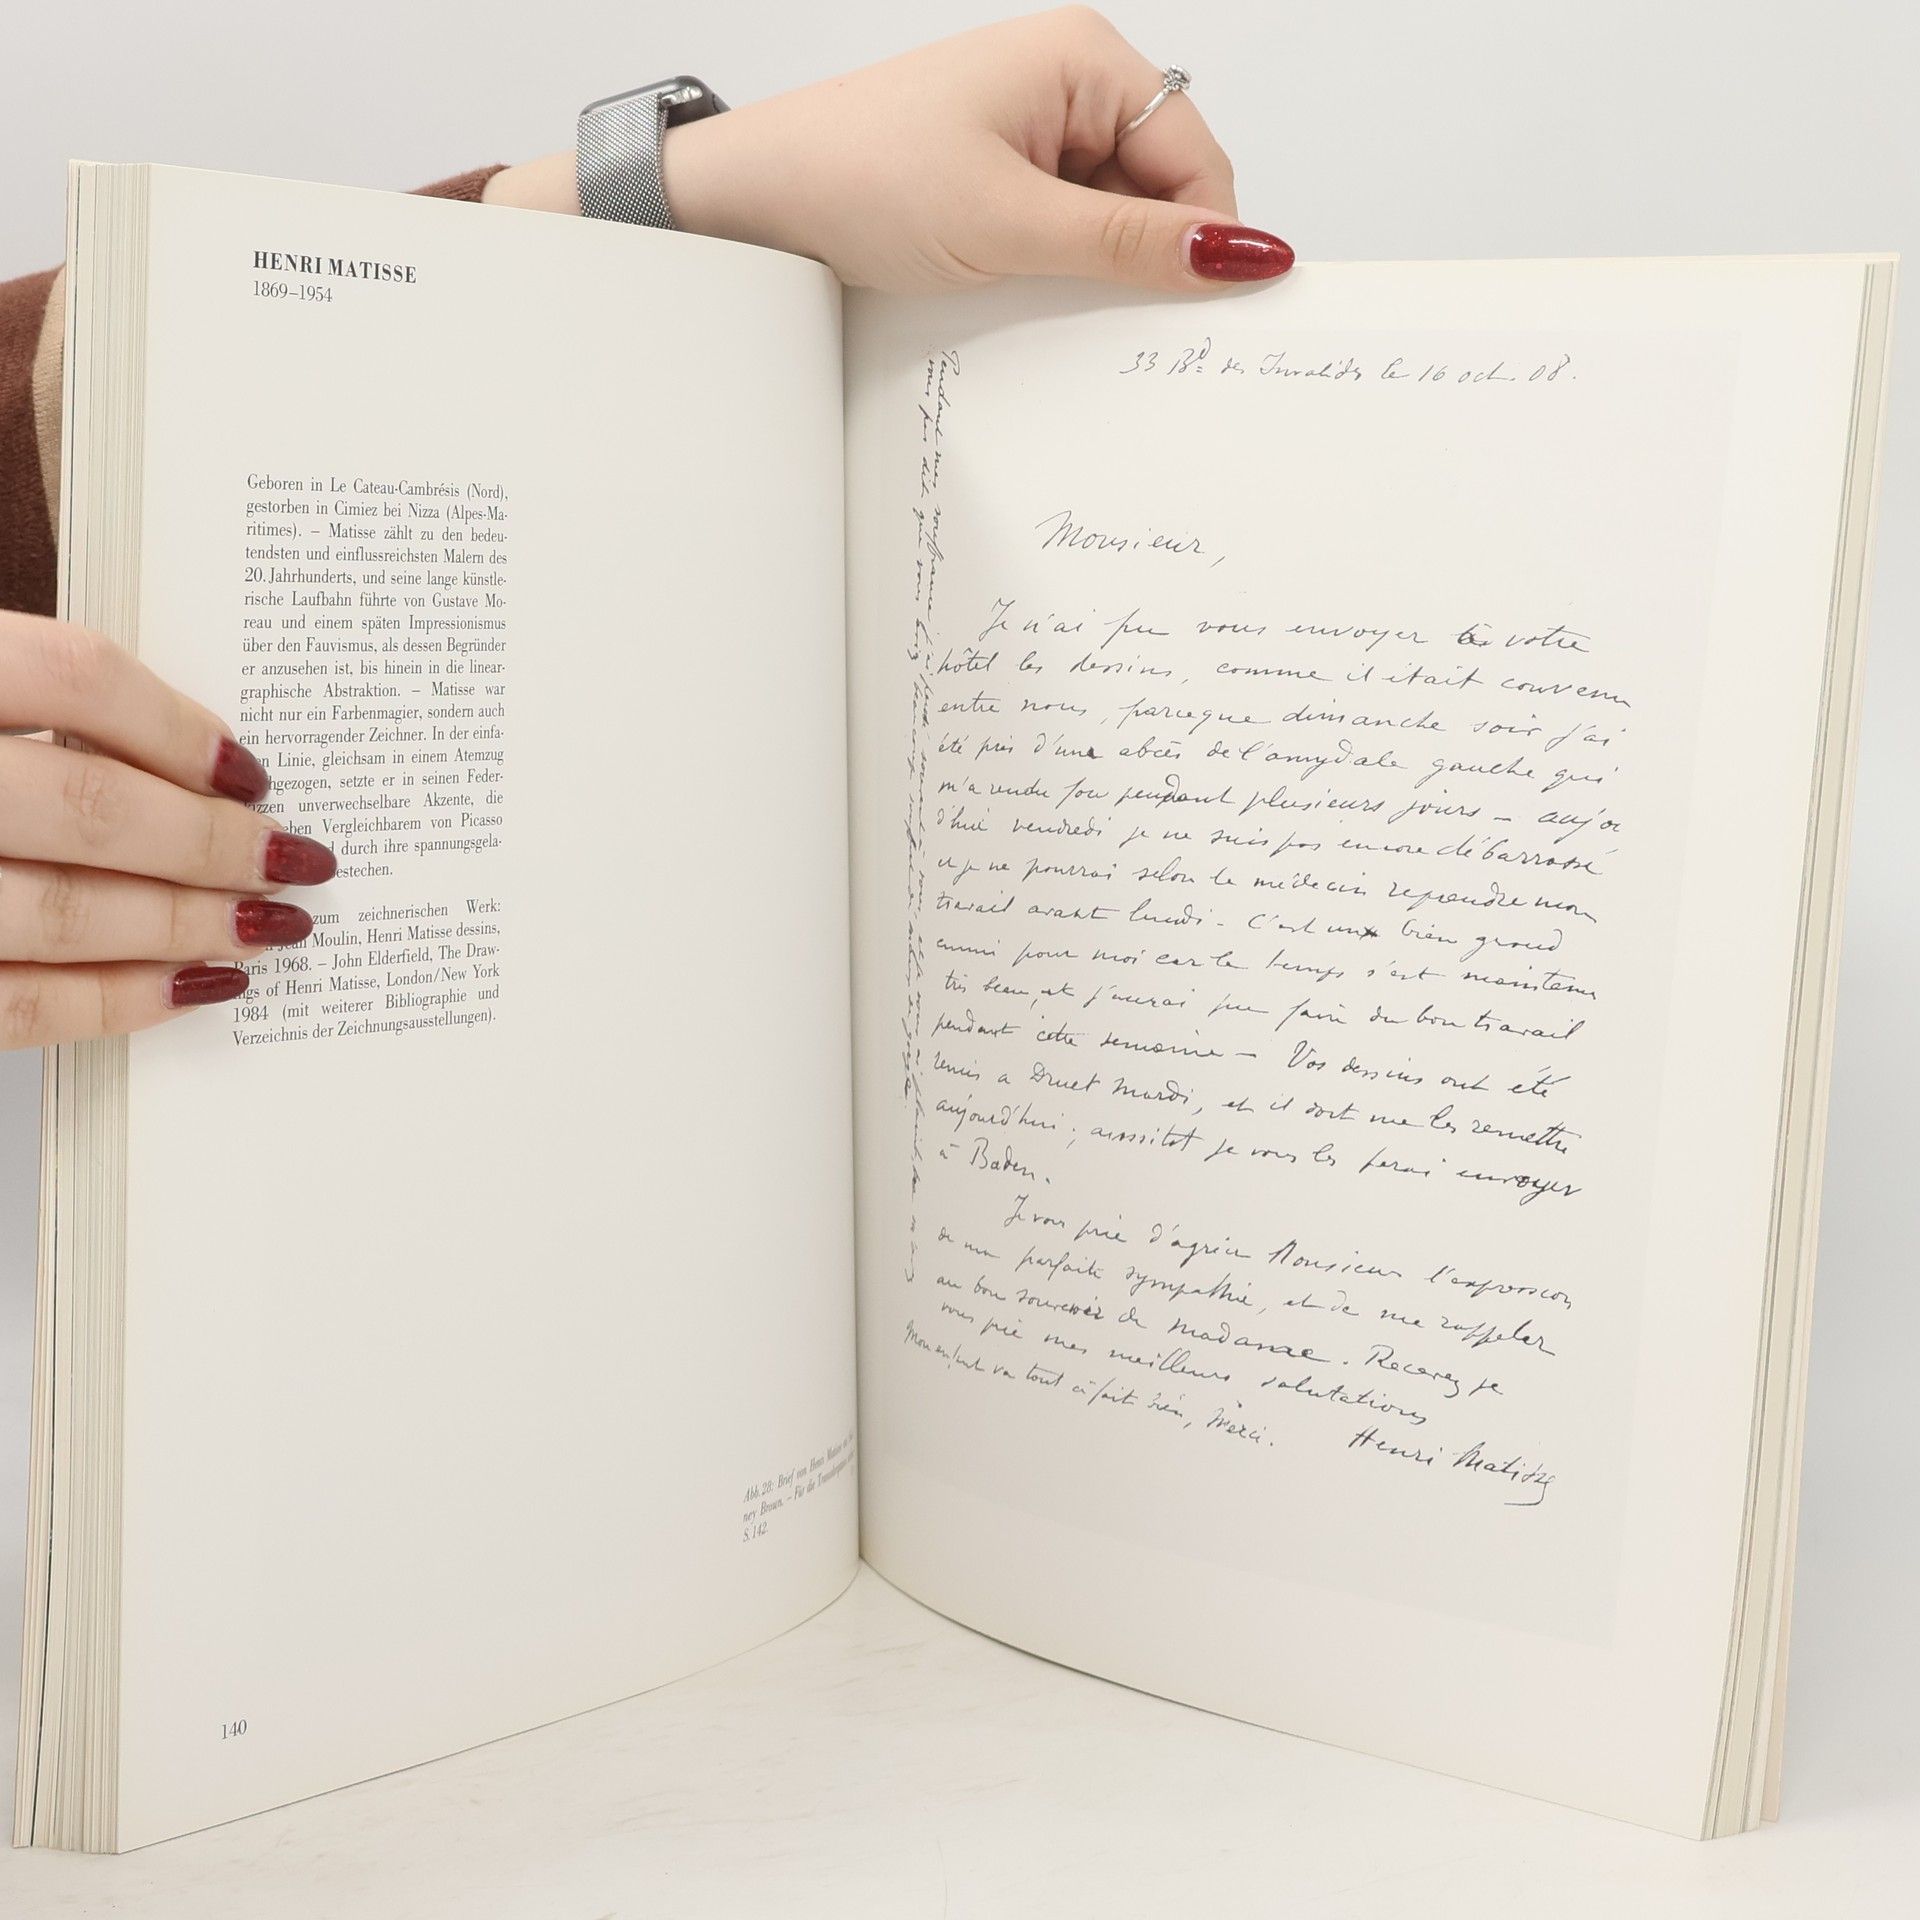 HENRI MATISSE
1869–1954
Geboren in Le Cateau-Cambrésis (Nord),
gestorben in Cimiez bei Nizza (Alpes-Ma-
ritimes). – Matisse zählt zu den bedeu-
tendsten und einflussreichsten Malern des
20. Jahrhunderts, und seine lange künstle-
rische Laufbahn führte von Gustave Mo-
reau und einem späten Impressionismus
über den Fauvismus, als dessen Begründer
er anzusehen ist, bis hinein in die linear-
graphische Abstraktion. – Matisse war
nicht nur ein Farbenmagier, sondern auch
ein hervorragender Zeichner. In der einfa-
en Linie, gleichsam in einem Atemzug
hgezogen, setzte er in seinen Feder-
izzen unverwechselbare Akzente, die
eben Vergleichbarem von Picasso
d durch ihre spannungsgela-
estechen.
zum zeichnerischen Werk:
Jean Moulin, Henri Matisse dessins,
Paris 1968. – John Elderfield, The Draw-
ings of Henri Matisse, London/New York
1984 (mit weiterer Bibliographie und
Verzeichnis der Zeichnungsausstellungen).
Abb. 28: Brief von Henri Matisse
ney Brown. – Für die
S. 142.
140
33 Bd des Invalides le 16 oct. 08.
Monsieur,
Je n'ai pu vous envoyer votre
hôtel les dessins, comme il était convenu
entre nous, parceque dimanche soir j'ai
été pris d'une abcès de l'amydale gauche qui
m'a rendu fou pendant plusieurs jours – aujou
d'hui vendredi je ne suis pas encore débarrassé
et je ne pourrai selon le médecin reprendre mon
travail avant lundi – C'est un bien grand
ennui pour moi car le temps s'est maintenu
très beau, et j'aurai pu faire du bon travail
pendant cette semaine – Vos dessins ont été
remis a Druet Mardi, et il doit me les remettre
aujourd'hui ; aussitot je vous les ferai envoyer
à Baden.
Je vous prie d'agréer Monsieur l'expression
de ma parfaite sympathie, et de me rappeler
au bon souvenir de madame. Recevez je
vous prie mes meilleures salutations
Henri Matisse
Mon enfant va tout à fait bien, Merci.
Pendant mes souffrances j'ai pensé souvent à vous, cela
vous pas dit que vous